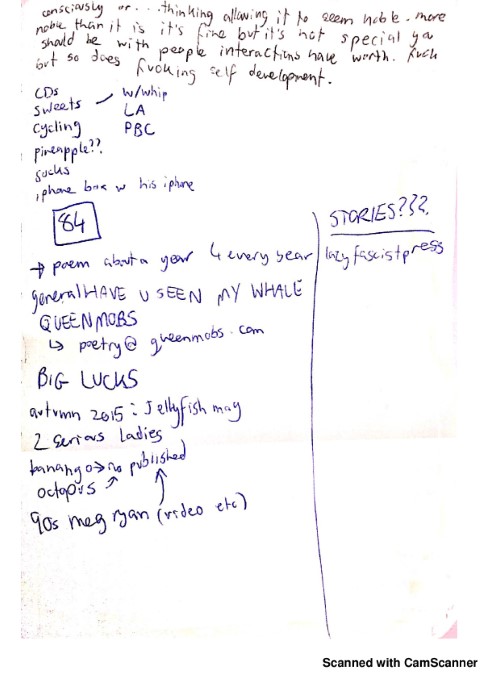 consciously or...thinking allowing it to seem noble. more
noble than it is it's fine but it's not special you
should be with people interactions have worth. fuck
but so does fucking self development.
CDs
sweets w/whip
LA
cycling PBC
pineapple??
sucks
iphone box w his iphone
84
→ poem about a year 4 every year
general HAVE U SEEN MY WHALE
QUEENMOBS
↳ poetry@queenmobs.com
BIG LUCKS
autumn 2015: Jellyfish may
2 serious ladies
banango → no published
octopus ↗
90s meg ryan (video etc)
STORIES???
lazyfascistpress
Scanned with CamScanner